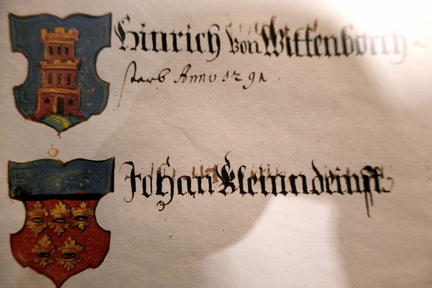 Hinrich von Wittenborch
starb Anno 1291
Johan Kleinndeinst